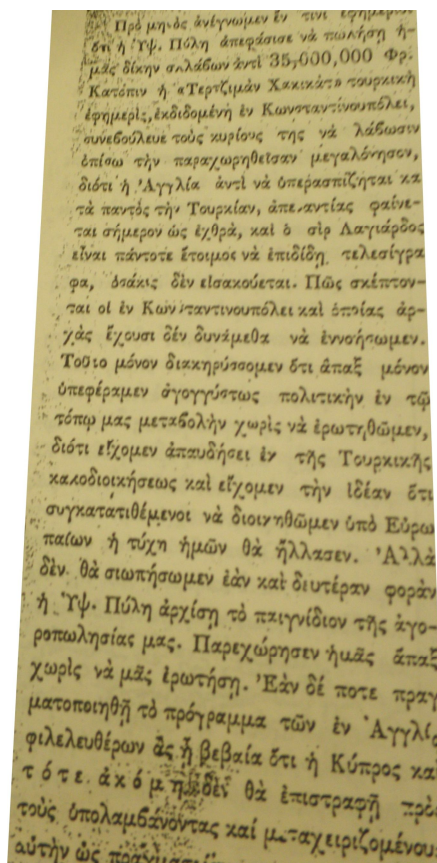 Πρὸ μηνὸς ἀνέγνωμεν ἔν τινι ἐφημερίδι
ὅτι ἡ Ὑψ. Πύλη ἀπεφάσισε νὰ πωλήσῃ ἡ-
μᾶς δίκην σκλάβων ἀντὶ 35,000,000 Φρ.
Κατόπιν ἡ «Τερτζιμὰν Χακικὰτ» τουρκικὴ
ἐφημερὶς, ἐκδιδομένη ἐν Κωνσταντινουπόλει,
συνεβούλευε τοὺς κυρίους της νὰ λάβωσιν
ὀπίσω τὴν παραχωρηθεῖσαν μεγαλόνησον,
διότι ἡ Ἀγγλία ἀντὶ νὰ ὑπερασπίζηται κα
τὰ παντὸς τὴν Τουρκίαν, ἀπεναντίας φαίνε-
ται σήμερον ὡς ἐχθρὰ, καὶ ὁ σὶρ Λαγιάρδος
εἶναι πάντοτε ἕτοιμος νὰ ἐπιδίδῃ τελεσίγρα
φα, ὁσάκις δὲν εἰσακούεται. Πῶς σκέπτον-
ται οἱ ἐν Κωνσταντινουπόλει καὶ ὁποίας ἀρ-
χὰς ἔχουσι δέν δυνάμεθα νὰ ἐννοήσωμεν.
Τοῦτο μόνον διακηρύσσομεν ὅτι ἅπαξ μόνον
ὑπεφέραμεν ἀγογγύστως πολιτικὴν ἐν τῷ
τόπῳ μας μεταβολὴν χωρὶς νὰ ἐρωτηθῶμεν,
διότι εἴχομεν ἀπαυδήσει ἐκ τῆς Τουρκικῆς
κακοδιοικήσεως καὶ εἴχομεν τὴν ἰδέαν ὅτι
συγκατατιθέμενοι νὰ διοικηθῶμεν ὑπὸ Εὐρω
παίων ἡ τύχη ἡμῶν θὰ ἤλλασεν. Ἀλλὰ
δὲν θὰ σιωπήσωμεν ἐὰν καὶ δευτέραν φορὰν
ἡ Ὑψ. Πύλη ἀρχίσῃ τὸ παιγνίδιον τῆς ἀγο-
ροπωλησίας μας. Παρεχώρησεν ἡμᾶς ἅπαξ
χωρὶς νὰ μᾶς ἐρωτήσῃ. Ἐὰν δέ ποτε πραγ
ματοποιηθῇ τὸ πρόγραμμα τῶν ἐν Ἀγγλίᾳ
φιλελευθέρων ἂς ᾖ βεβαία ὅτι ἡ Κύπρος καὶ
τότε ἀκόμη δὲν θὰ ἐπιστραφῇ πρὸς
τοὺς ὑπολαμβάνοντας καί μεταχειριζομένους
αὐτὴν ὡς